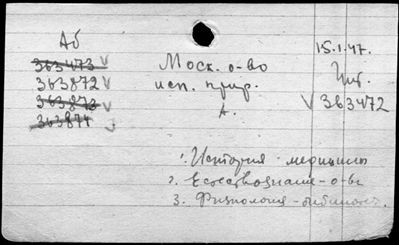 Аб
363473 V
363872 V
363873 V
363874 V
Моск. о-во
исп. прир.
А.
15.1.47.
Чит.
V 363472
1. История медицины
2. Естествознание - о-ва
3. Физиология -